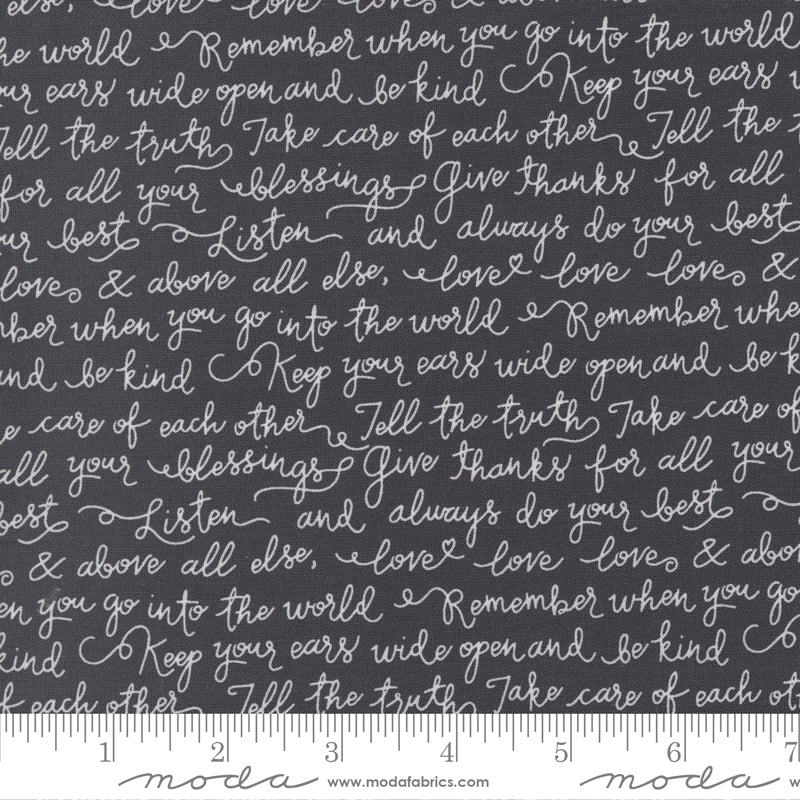 else, love love loves & above
he world Remember when you go into the world
ur ears wide open and be kind Keep your ears
Tell the truth Take care of each other Tell the t
for all your blessings Give thanks for all
ur best Listen and always do your best
loves & above all else, love love loves &
mber when you go into the world Remember whe
and be kind Keep your ears wide open and be k
e care of each other Tell the truth Take care of
all your blessings Give thanks for all your
best Listen and always do your best
s & above all else, love love loves & abov
en you go into the world Remember when you go
kind Keep your ears wide open and be kind
of each other Tell the truth Take care of each ot
1 2 3 4 5 6 7
moda www.modafabrics.com moda w